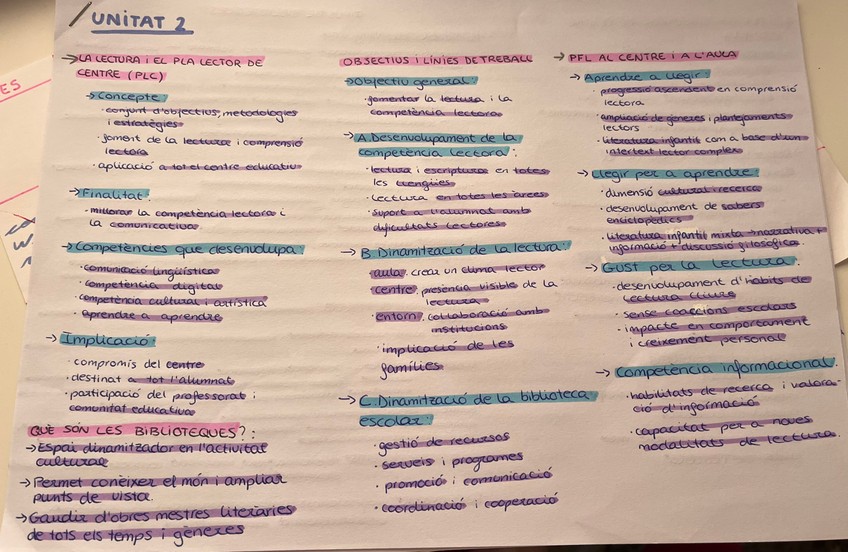 UNITAT 2
→ LA LECTURA i EL PLA LECTOR DE
CENTRE (PLC)
→ Concepte
· conjunt d'objectius, metodologies
i estratègies
· foment de la lectura i comprensió
lectora
· aplicació a tot el centre educatiu
→ Finalitat:
· millorar la competència lectora i
la comunicativa
→ Competències que desenvolupa:
· comunicació lingüística
· competència digital
· competència cultural i artística
· aprendre a aprendre
→ Implicació:
· compromís del centre
· destinat a tot l'alumnat
· participació del professorat i
comunitat educativa
QUÈ SÓN LES BIBLIOTEQUES?:
→ Espai dinamitzador en l'activitat
cultural
→ Permet conèixer el món i ampliar
punts de vista.
→ Gaudir d'obres mestres literàries
de tots els temps i gèneres
OBJECTIUS i LÍNIES DE TREBALL
→ Objectiu general:
· fomentar la lectura i la
competència lectora
→ A. Desenvolupament de la
competència lectora:
· lectura i escriptura en totes
les llengües
· lectura en totes les àrees
· suport a l'alumnat amb
dificultats lectores
→ B. Dinamització de la lectura:
aula: crear un clima lector
centre: presència visible de la
lectura
· entorn: col·laboració amb
institucions
· implicació de les
famílies
→ C. Dinamització de la biblioteca
escolar:
· gestió de recursos
· serveis i programes
· promoció i comunicació
· coordinació i cooperació
→ PFL AL CENTRE i A L'AULA
→ Aprendre a llegir:
· progressió ascendent en comprensió
lectora
· ampliació de gèneres i plantejaments
lectors
· literatura infantil com a base d'un
intertext lector complex
→ Llegir per a aprendre:
· dimensió cultural recerca
· desenvolupament de sabers
enciclopèdics
· literatura infantil mixta → narrativa +
informació + discussió filosòfica.
→ GUST per la lectura:
· desenvolupament d'hàbits de
lectura lliure
· sense coaccions escolars
· impacte en comportament
i creixement personal
→ Competència informacional:
· habilitats de recerca i valora-
ció d'informació
· capacitat per a noves
modalitats de lectura.
ES